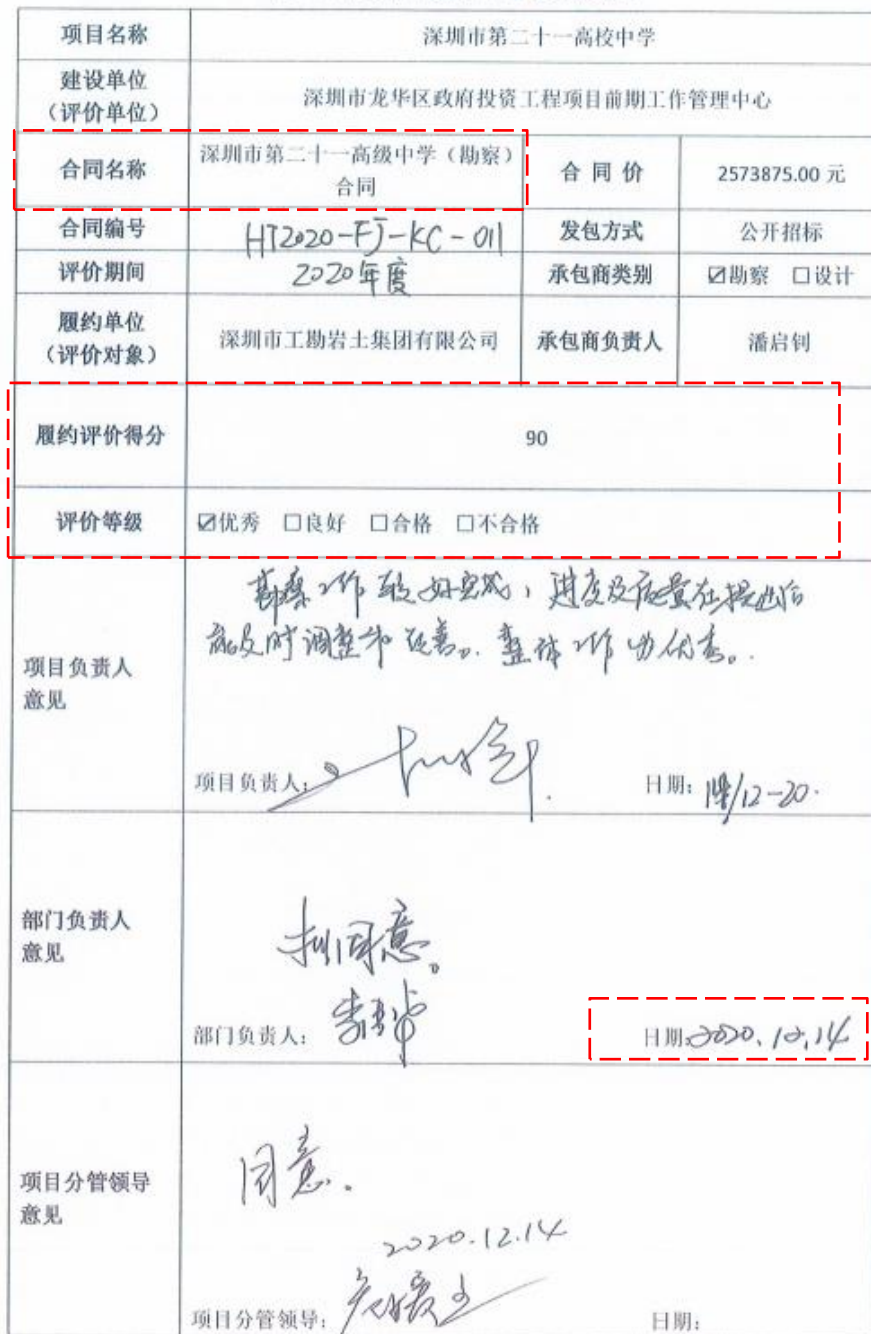 项目名称 深圳市第二十一高校中学
建设单位
（评价单位） 深圳市龙华区政府投资工程项目前期工作管理中心
合同名称 深圳市第二十一高级中学（勘察）
合同 合同价 2573875.00 元
合同编号 HT2020-FJ-KC-011 发包方式 公开招标
评价期间 2020年度 承包商类别 ☑勘察 □设计
履约单位
（评价对象） 深圳市工勘岩土集团有限公司 承包商负责人 潘启钊
履约评价得分 90
评价等级 ☑优秀 □良好 □合格 □不合格
勘察工作较好完成，进度及质量在提出后
能及时调整和改善。整体工作为优秀。
项目负责人
意见
项目负责人： 日期：14/12-20.
部门负责人
意见
拟同意。
部门负责人： 日期：2020.12.14
项目分管领导
意见
同意。
2020.12.14
项目分管领导： 日期：